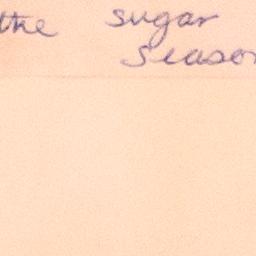 the sugar
season